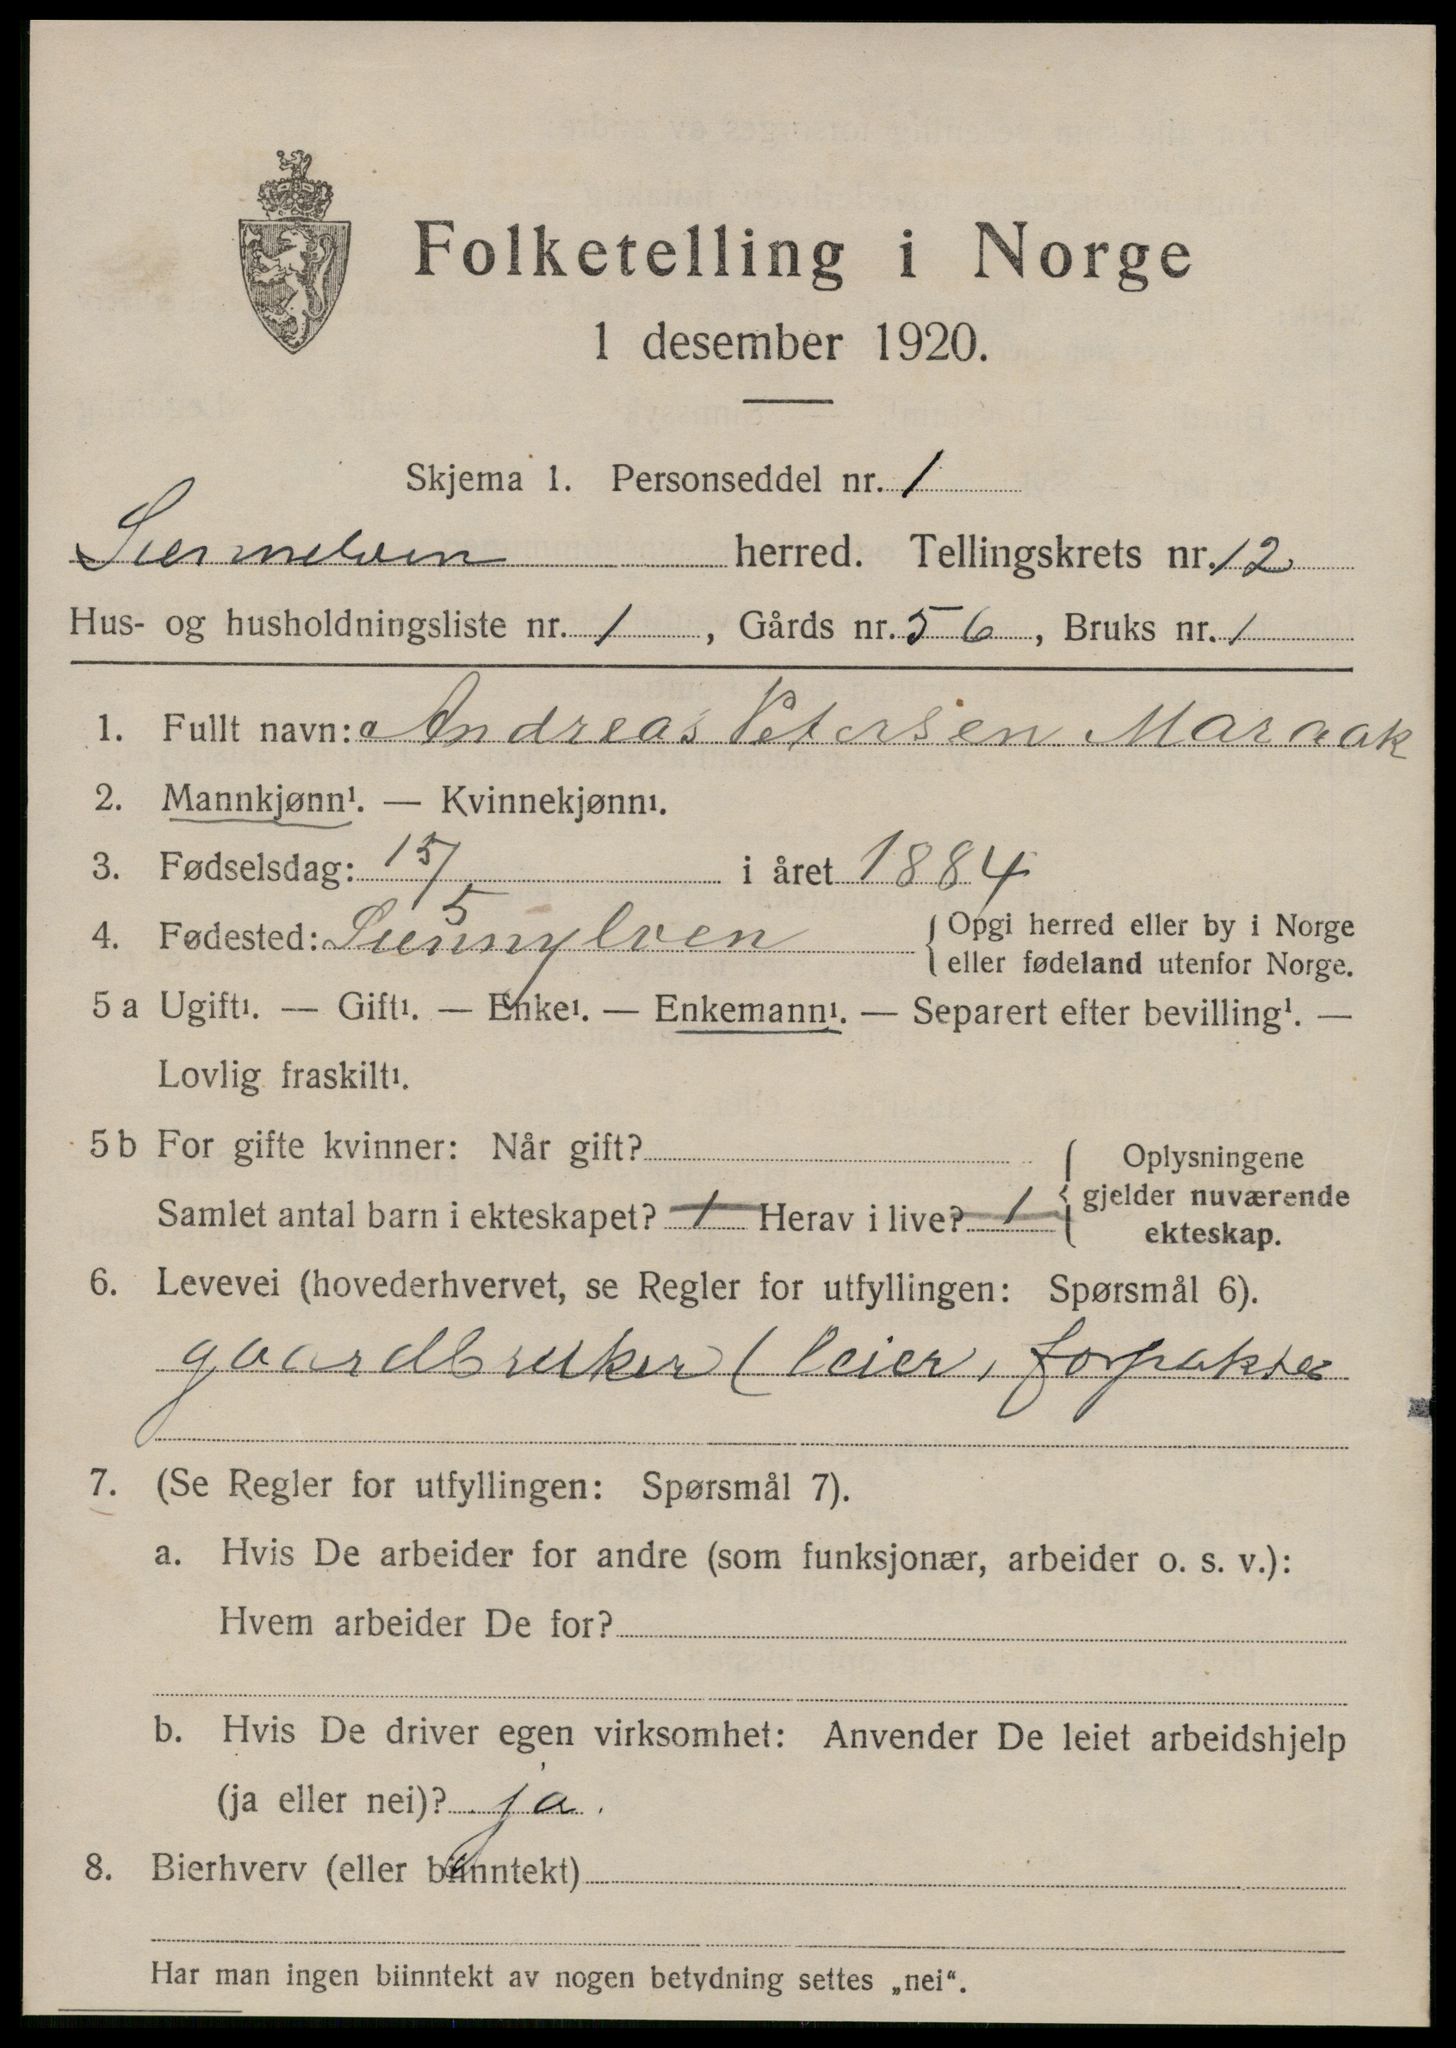 Folketelling i Norge
1 desember 1920.
Skjema 1. Personseddel nr. 1
herred. Tellingskrets nr. 12
Hus- og husholdningsliste nr. 1, Gårds nr. 56, Bruks nr. 1
1. Fullt navn: Andreas Petersen Maraak
2. Mannkjønn¹. — Kvinnekjønn¹.
3. Fødselsdag: 15/5 i året 1884
4. Fødested: Sunnylven { Opgi herred eller by i Norge
eller fødeland utenfor Norge.
5 a Ugift¹. — Gift¹. — Enke¹. — Enkemann¹. — Separert efter bevilling¹. —
Lovlig fraskilt¹.
5 b For gifte kvinner: Når gift?
Samlet antal barn i ekteskapet? 1 Herav i live? 1
{ Oplysningene
gjelder nuværende
ekteskap.
6. Levevei (hovederhvervet, se Regler for utfyllingen: Spørsmål 6).
gaardbruker (leier, forpakter
7. (Se Regler for utfyllingen: Spørsmål 7).
a. Hvis De arbeider for andre (som funksjonær, arbeider o. s. v.):
Hvem arbeider De for?
b. Hvis De driver egen virksomhet: Anvender De leiet arbeidshjelp
(ja eller nei)? ja.
8. Bierhverv (eller biinntekt)
Har man ingen biinntekt av nogen betydning settes „nei“.